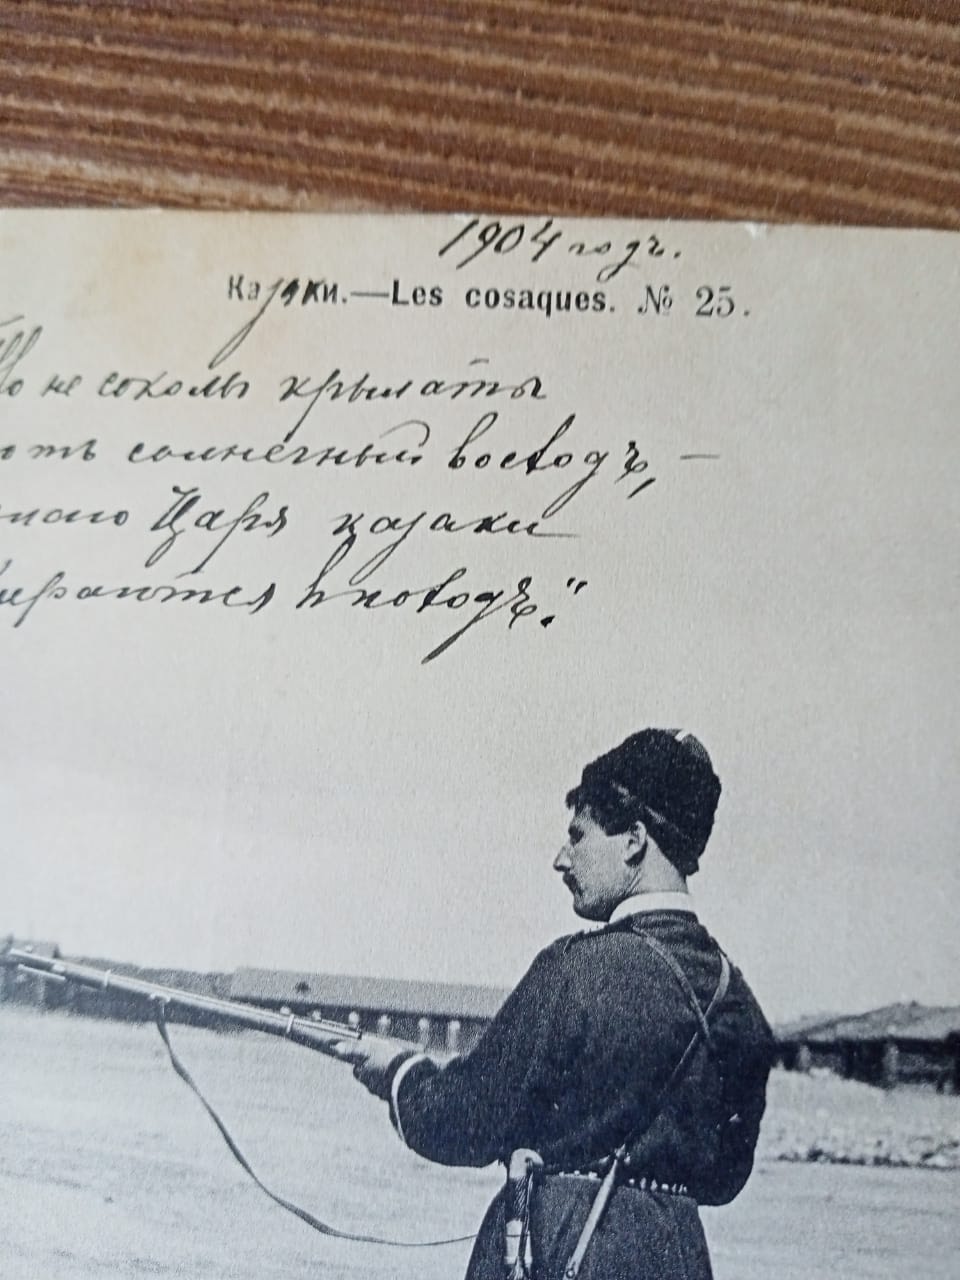 1904 годъ.
Казаки.—Les cosaques. № 25.
То не соколы крылаты
ютъ солнечный восходъ,—
лаго Царя казаки
ираются въ походъ."